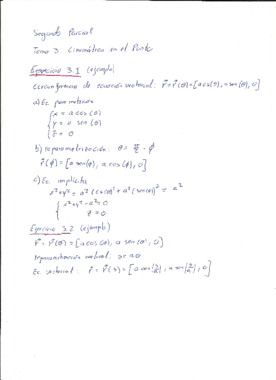 Segundo Parcial
Tema 3. Cinemática en el Punto
Ejercicio 3.1 (ejemplo)
Circunferencia de ecuación vectorial: r⃗ = r⃗(θ) = [a cos(θ), a sen(θ), 0]
a) Ec. paramétricas
{ x = a cos(θ)
y = a sen(θ)
z = 0
b) reparametrización: θ = π/2 - φ
r⃗(φ) = [a sen(φ), a cos(φ), 0]
c) Ec. implícita
x²+y² = a² (cos(θ))² + a² (sen(θ))² = a²
{ x²+y²-a² = 0
z = 0
Ejercicio 3.2 (ejemplo)
r⃗ = r⃗(θ) = [a cos(θ), a sen(θ), 0]
reparametrización natural: s = aθ
Ec. vectorial: r⃗ = r⃗(s) = [a cos(s/a), a sen(s/a), 0]